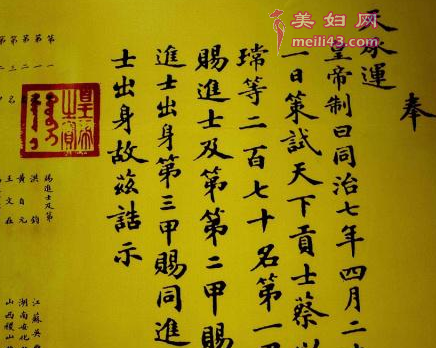 美妇网
meili43.com
奉
天承運
皇帝制曰同治七年四月二
一日策試天下貢士蔡
瑺等二百七十名第一甲
賜進士及第第二甲賜
進士出身第三甲賜同進
士出身故茲誥示
皇帝之寶
賜進士及第
洪鈞 江蘇吳
黃自元 湖南安化
第三名 王文在 山西稷山